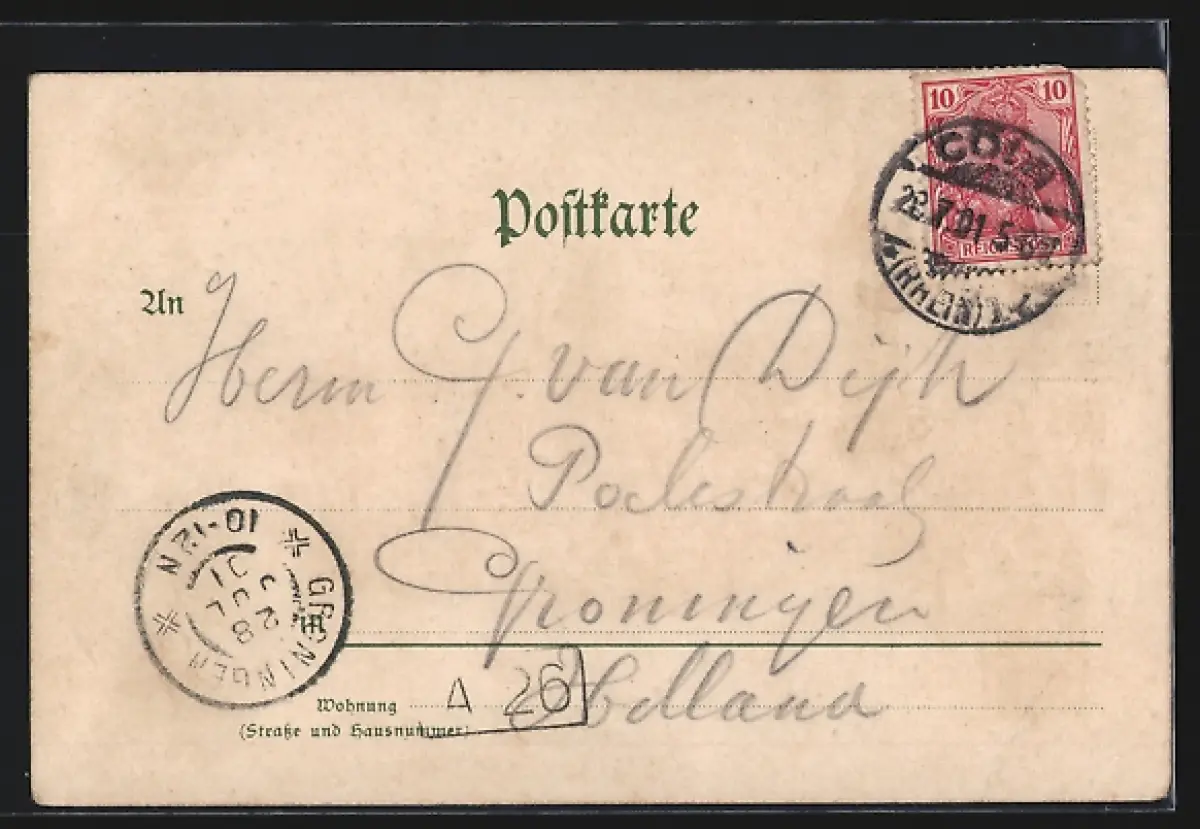 10 10
REICHSPOST
CÖLN
7.01 5-6
(RHEIN) 1
Postkarte
An
Herrn G. van Dijk
Poelestraat
Groningen
Holland
in
GRONINGEN
28 JUL 01
10-12N
Wohnung
(Straße und Hausnummer)
A 26